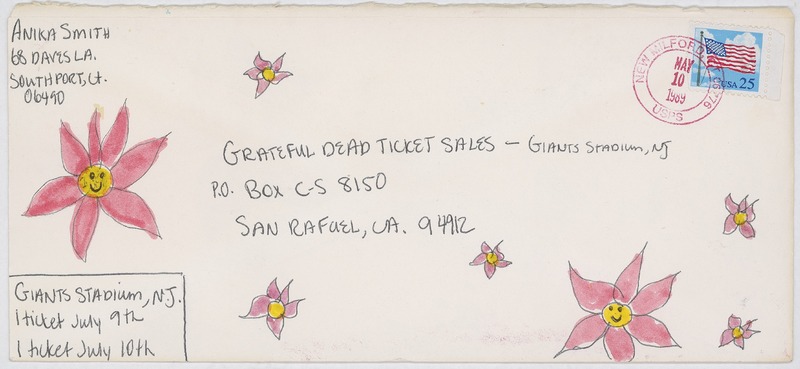 ANIKA SMITH
68 DAVES LA.
SOUTHPORT, Ct.
06490
NEW MILFORD CT 06776
MAY
10
1989
USPS
USA 25
GRATEFUL DEAD TICKET SALES – GIANTS STADIUM, NJ
P.O. BOX C-S 8150
SAN RAFAEL, CA. 94912
GIANTS STADIUM, N.J.
1 ticket July 9th
1 ticket July 10th